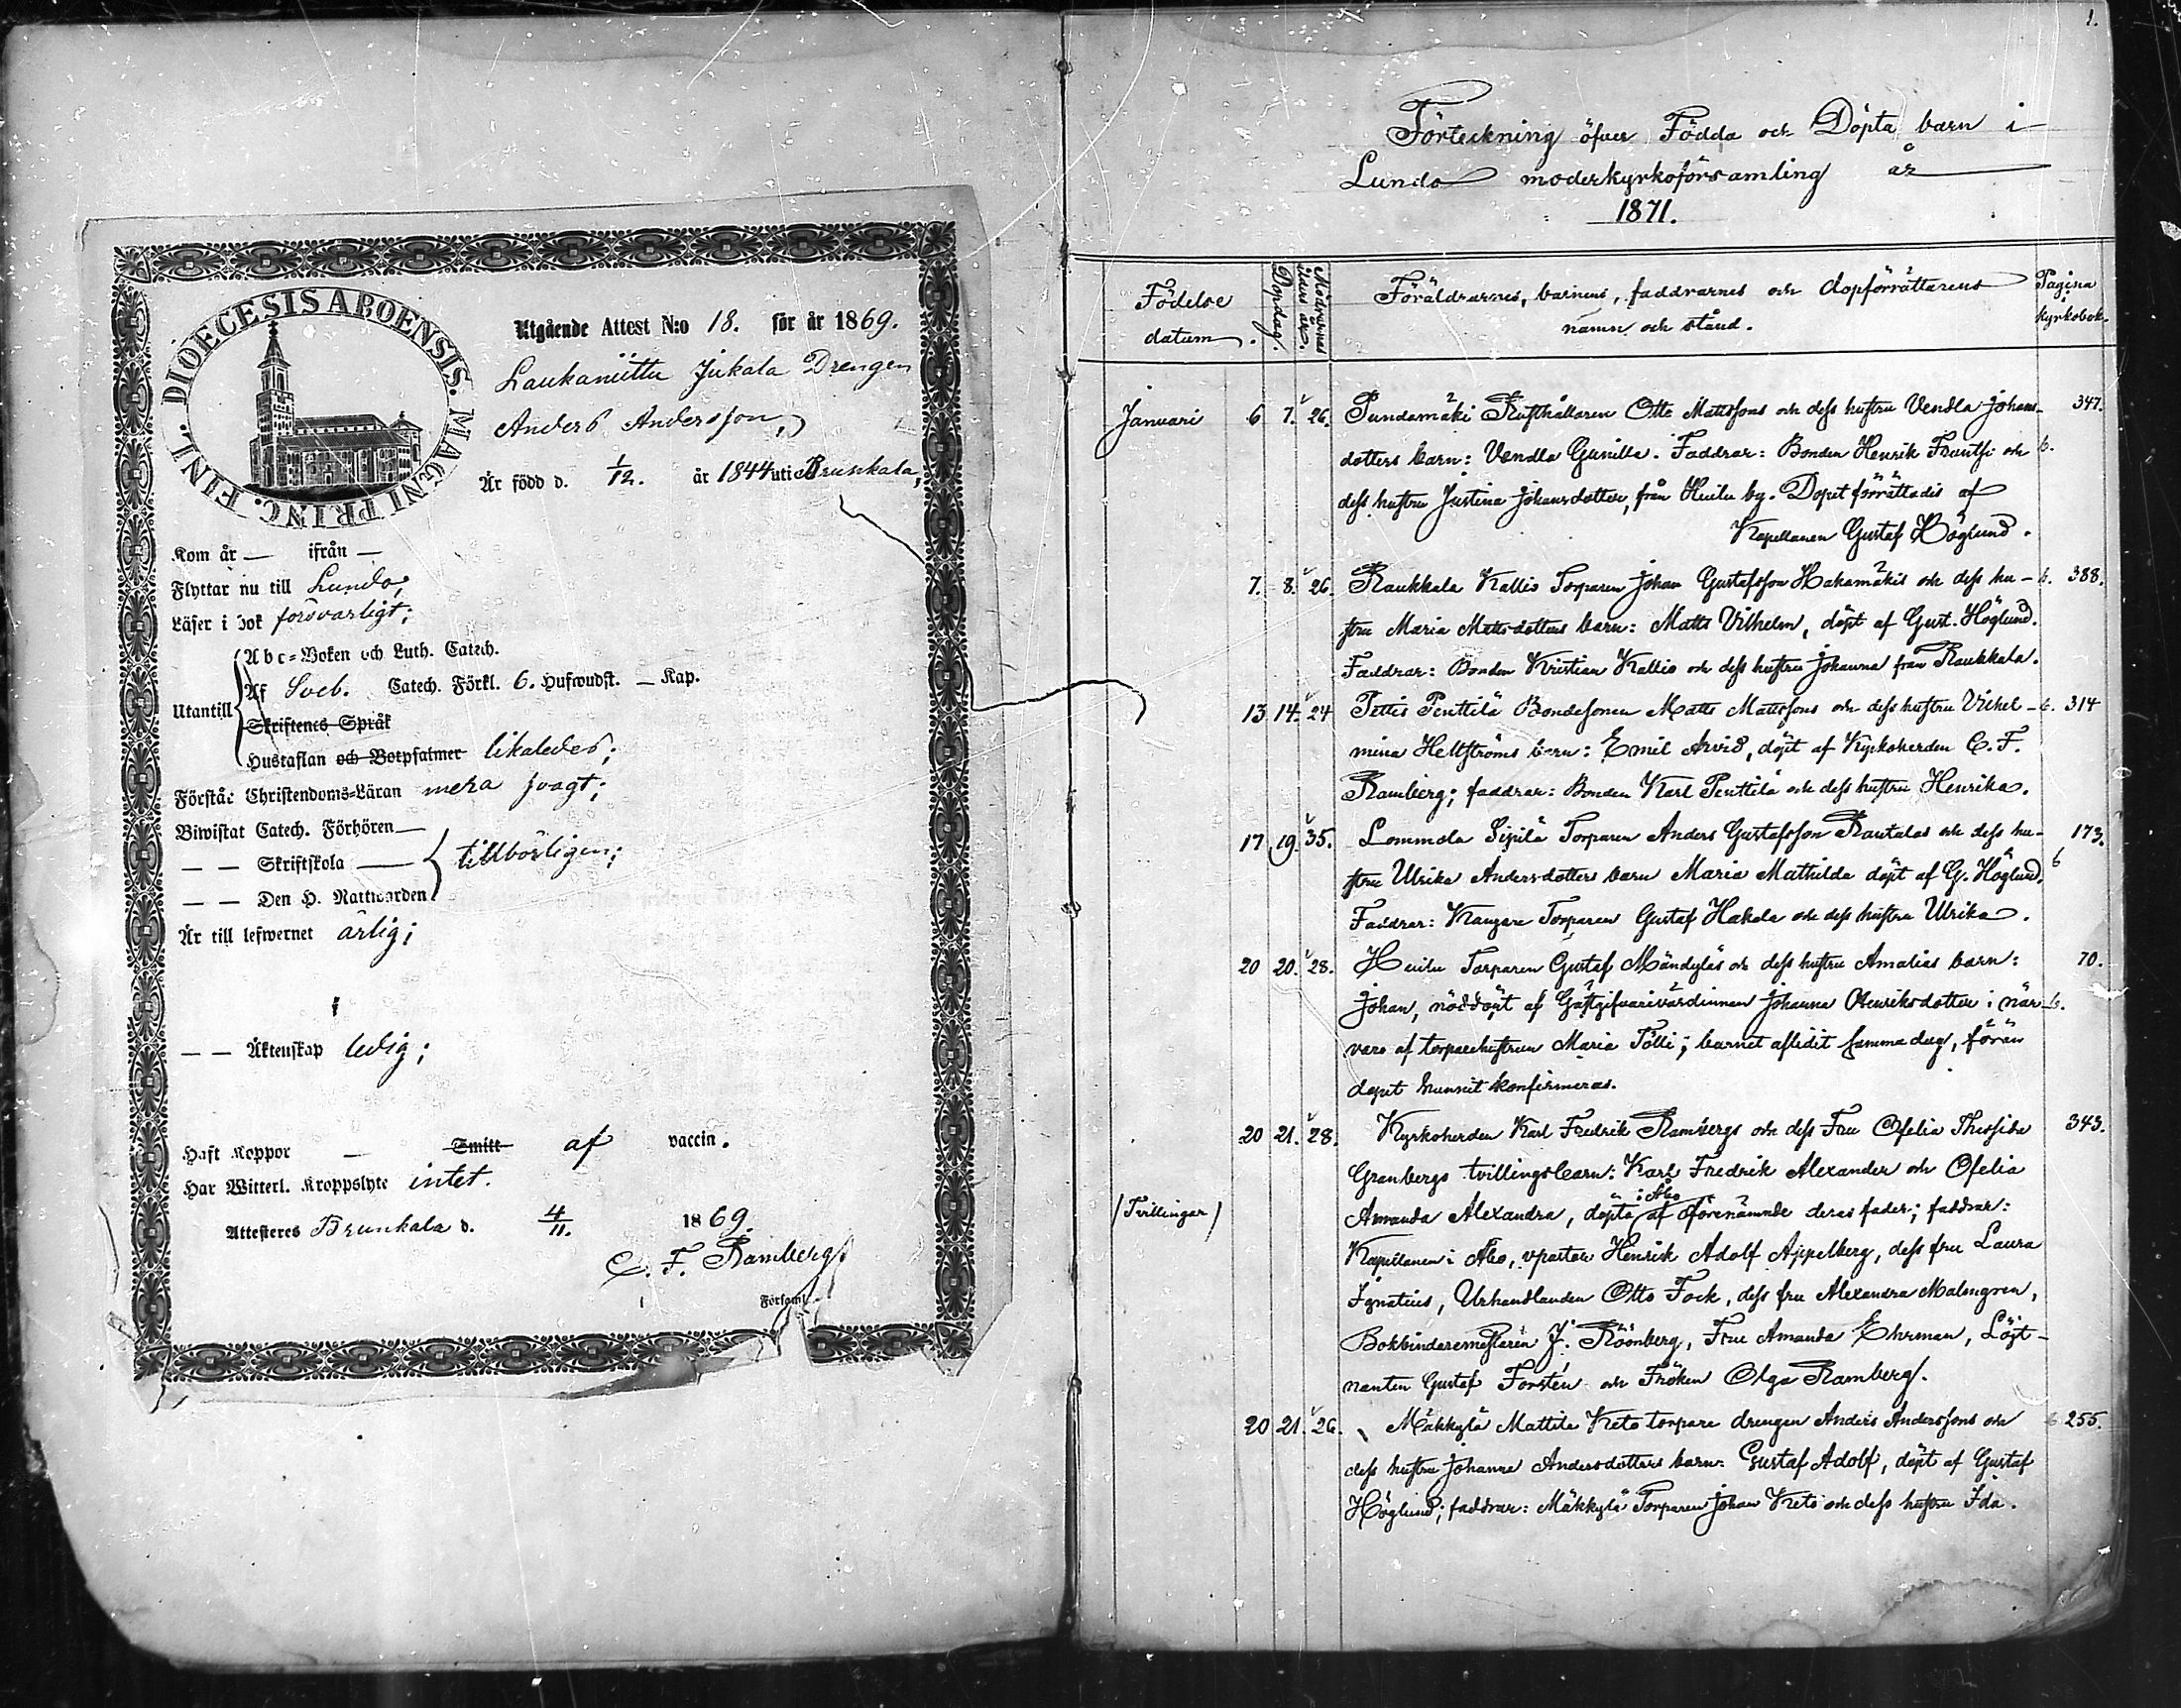 DIOECESIS ABOENSIS. MAGNI PRINC. FINL.
Utgående Attest N:o 18. för år 1869.
Laukaniittu Jukala Drengen
Anders Andersson,
Är född d. 1/12. år 1844 uti Brunkala,
Kom år — ifrån —
Flyttar nu till Lundo,
Läser i bok försvarligt;
Utantill
Abc-Boken och Luth. Catech.
Af Sveb. Catech. Förkl. 6. Hufwudst. — Kap.
Skriftenes Språk
Hustaflan och Botpsalmer likaledes;
Förstår Christendoms-Läran mera svagt;
Biwistat Catech. Förhören —
— — Skriftskola — tillbörligen;
— — Den H. Nattwarden
Är till lefwernet ärlig;
— — Äktenskap ledig;
Haft Koppor — Smitt af vaccin.
Har Witterl. Kroppslyte intet.
Attesteres Brunkala d. 4/11. 1869.
C. F. Ramberg
Församl.
1.
Förteckning öfver Födda och Döpta barn i
Lundo moderkyrkoförsamling år
1871.
Födelse datum.
Dopdag.
Mödrarnas ålder år.
Föräldrarnes, barnens, faddrarnes och dopförrättarens
namn och stånd.
Pagina i kyrkobok.
Januari 6 7. 26. Pundamäki Rusthållaren Otto Mattssons och dess hustru Vendla Johans- 347.
dotters barn: Vendla Gunilla. Faddrar: Bonden Henrik Frantsi och b.
dess hustru Justina Johansdotter, från Huilu by. Dopet förrättades af
Kapellanen Gustaf Höglund.
7. 8. 26. Raukkala Kallis Torparen Johan Gustafsson Hakamäkis och dess hu- b. 388.
stru Maria Mattsdotters barn: Matts Vilhelm, döpt af Gust. Höglund.
Faddrar: Bonden Kristian Kallio och dess hustru Johanna från Raukkala.
13 14. 24 Pettis Penttilä Bondesonen Matts Mattssons och dess hustru Vilhel- b. 314
mina Hellströms barn: Emil Arvid, döpt af Kyrkoherden C. F.
Ramberg; faddrar: Bonden Karl Penttilä och dess hustru Henrika.
17 19. 35. Lommola Sipilä Torparen Anders Gustafsson Rautalas och dess hu- 173.
stru Ulrika Andersdotters barn Maria Mathilda döpt af G. Höglund. b
Faddrar: Kangare Torparen Gustaf Hakola och dess hustru Ulrika.
20 20. 28. Huilu Torparen Gustaf Mändyläs och dess hustru Amalias barn: 70.
Johan, nöddöpt af Gästgifvarivärdinnan Johanna Henriksdotter i när- b.
varo af torparehustrun Maria Tölli; barnet aflidit samma dag, förän
dopet hunnit konfirmeras.
20 21. 28. Kyrkoherden Karl Fredrik Rambergs och dess Fru Ofelia 343.
Granbergs tvillingsbarn: Karl Fredrik Alexander och Ofelia
(Tvillingar) Amanda Alexandra, döpta i Åbo af förenämnde deras fader; faddrar:
Kapellanen i Åbo, vpastor Henrik Adolf Appelberg, dess fru Laura
Ignatius, Urhandlanden Otto Fock, dess fru Alexandra Malmgren,
Bokbindaremästaren J. Röönberg, Fru Amanda Ehrman, Löjt-
nanten Gustaf Forstén och Fröken Olga Ramberg.
20 21. 26. Mäkkylä Mattila Keto torpare drengen Anders Anderssons och b 255.
dess hustru Johanna Andersdotters barn: Gustaf Adolf, döpt af Gustaf
Höglund; faddrar: Mäkkylä Torparen Johan Keto och dess hustru Ida.